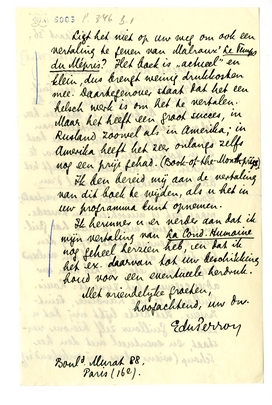 5003 P 346 B.1
Ligt het niet op uw weg om ook een
vertaling te geven van Malraux' Le Temps
du Mépris? Het boek is "actueel" en
klein, dus brengt weinig drukkosten
mee. Daartegenover staat dat het een
helsch werk is om het te vertalen.
Maar het heeft een groot succes, in
Rusland zoowel als in Amerika; in
Amerika heeft het zeer onlangs zelfs
nog een prijs gehad. (Book-of-the-Month prijs)
Ik ben bereid mij aan de vertaling
van dit boek te wijden, als u het in
uw programma kunt opnemen.
Ik herinner u er verder aan dat ik
mijn vertaling van La Cond. Humaine
nog geheel herzien heb, en dat ik
het ex. daarvan tot uw beschikking
houd voor een eventueele herdruk.
Met vriendelijke groeten,
hoogachtend, uw dw.
EduPerron
Boul<sup>d</sup> Murat 88.
Paris (16<sup>e</sup>).